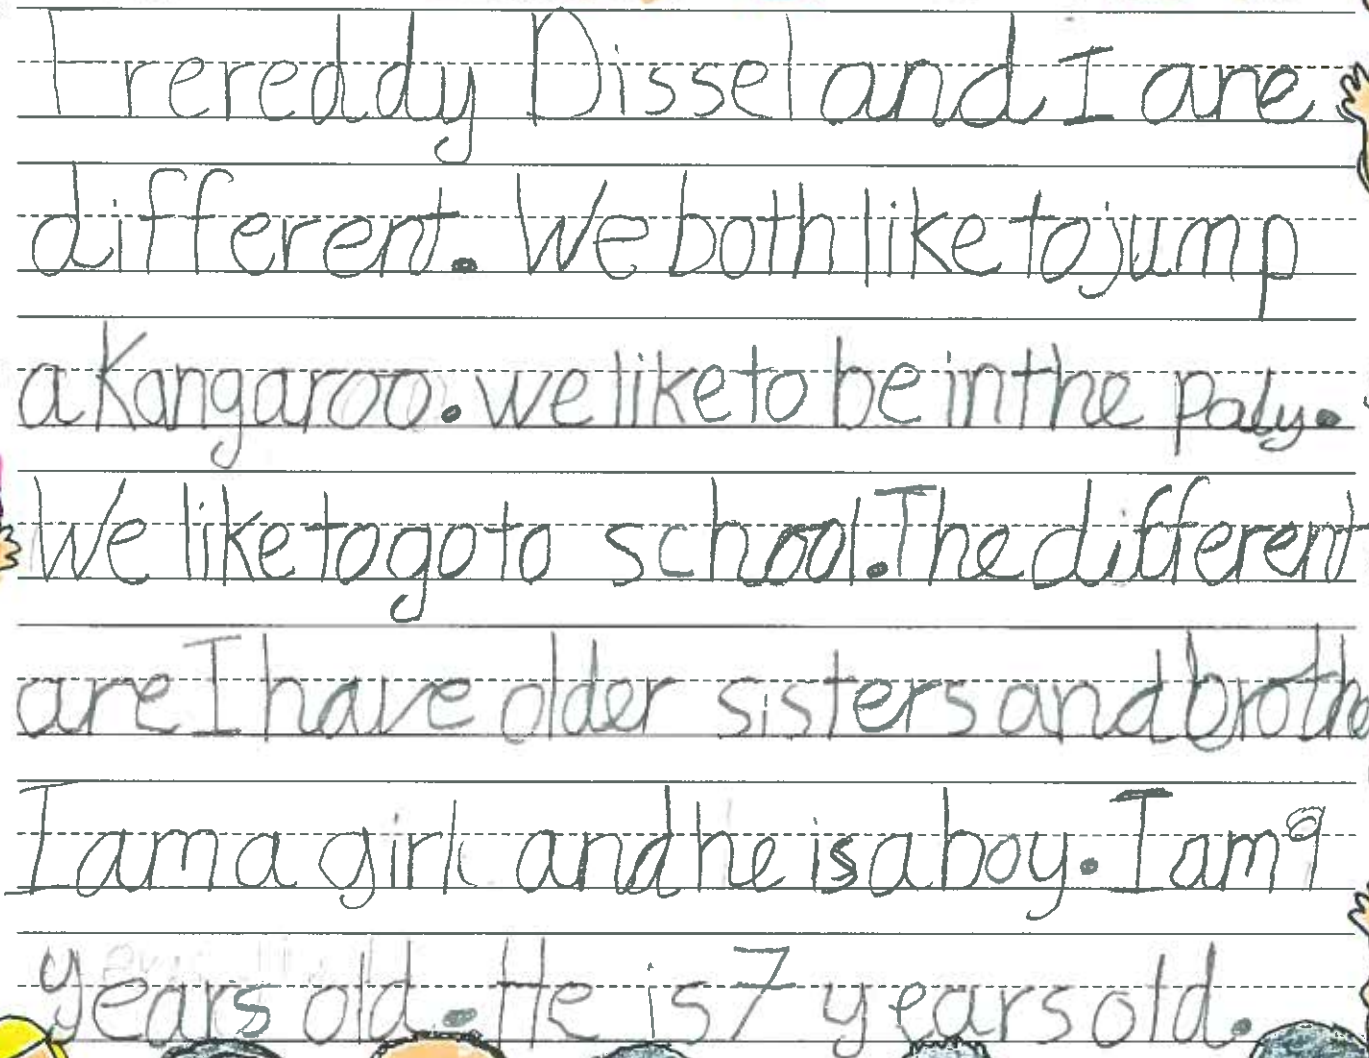 Frereddy Dissel and I are
different. We both like to jump
a Kangaroo. we like to be in the paly.
We like to go to school. The different
are I have older sisters and brothe
I am a girl and he is a boy. I am 9
years old. He is 7 years old.